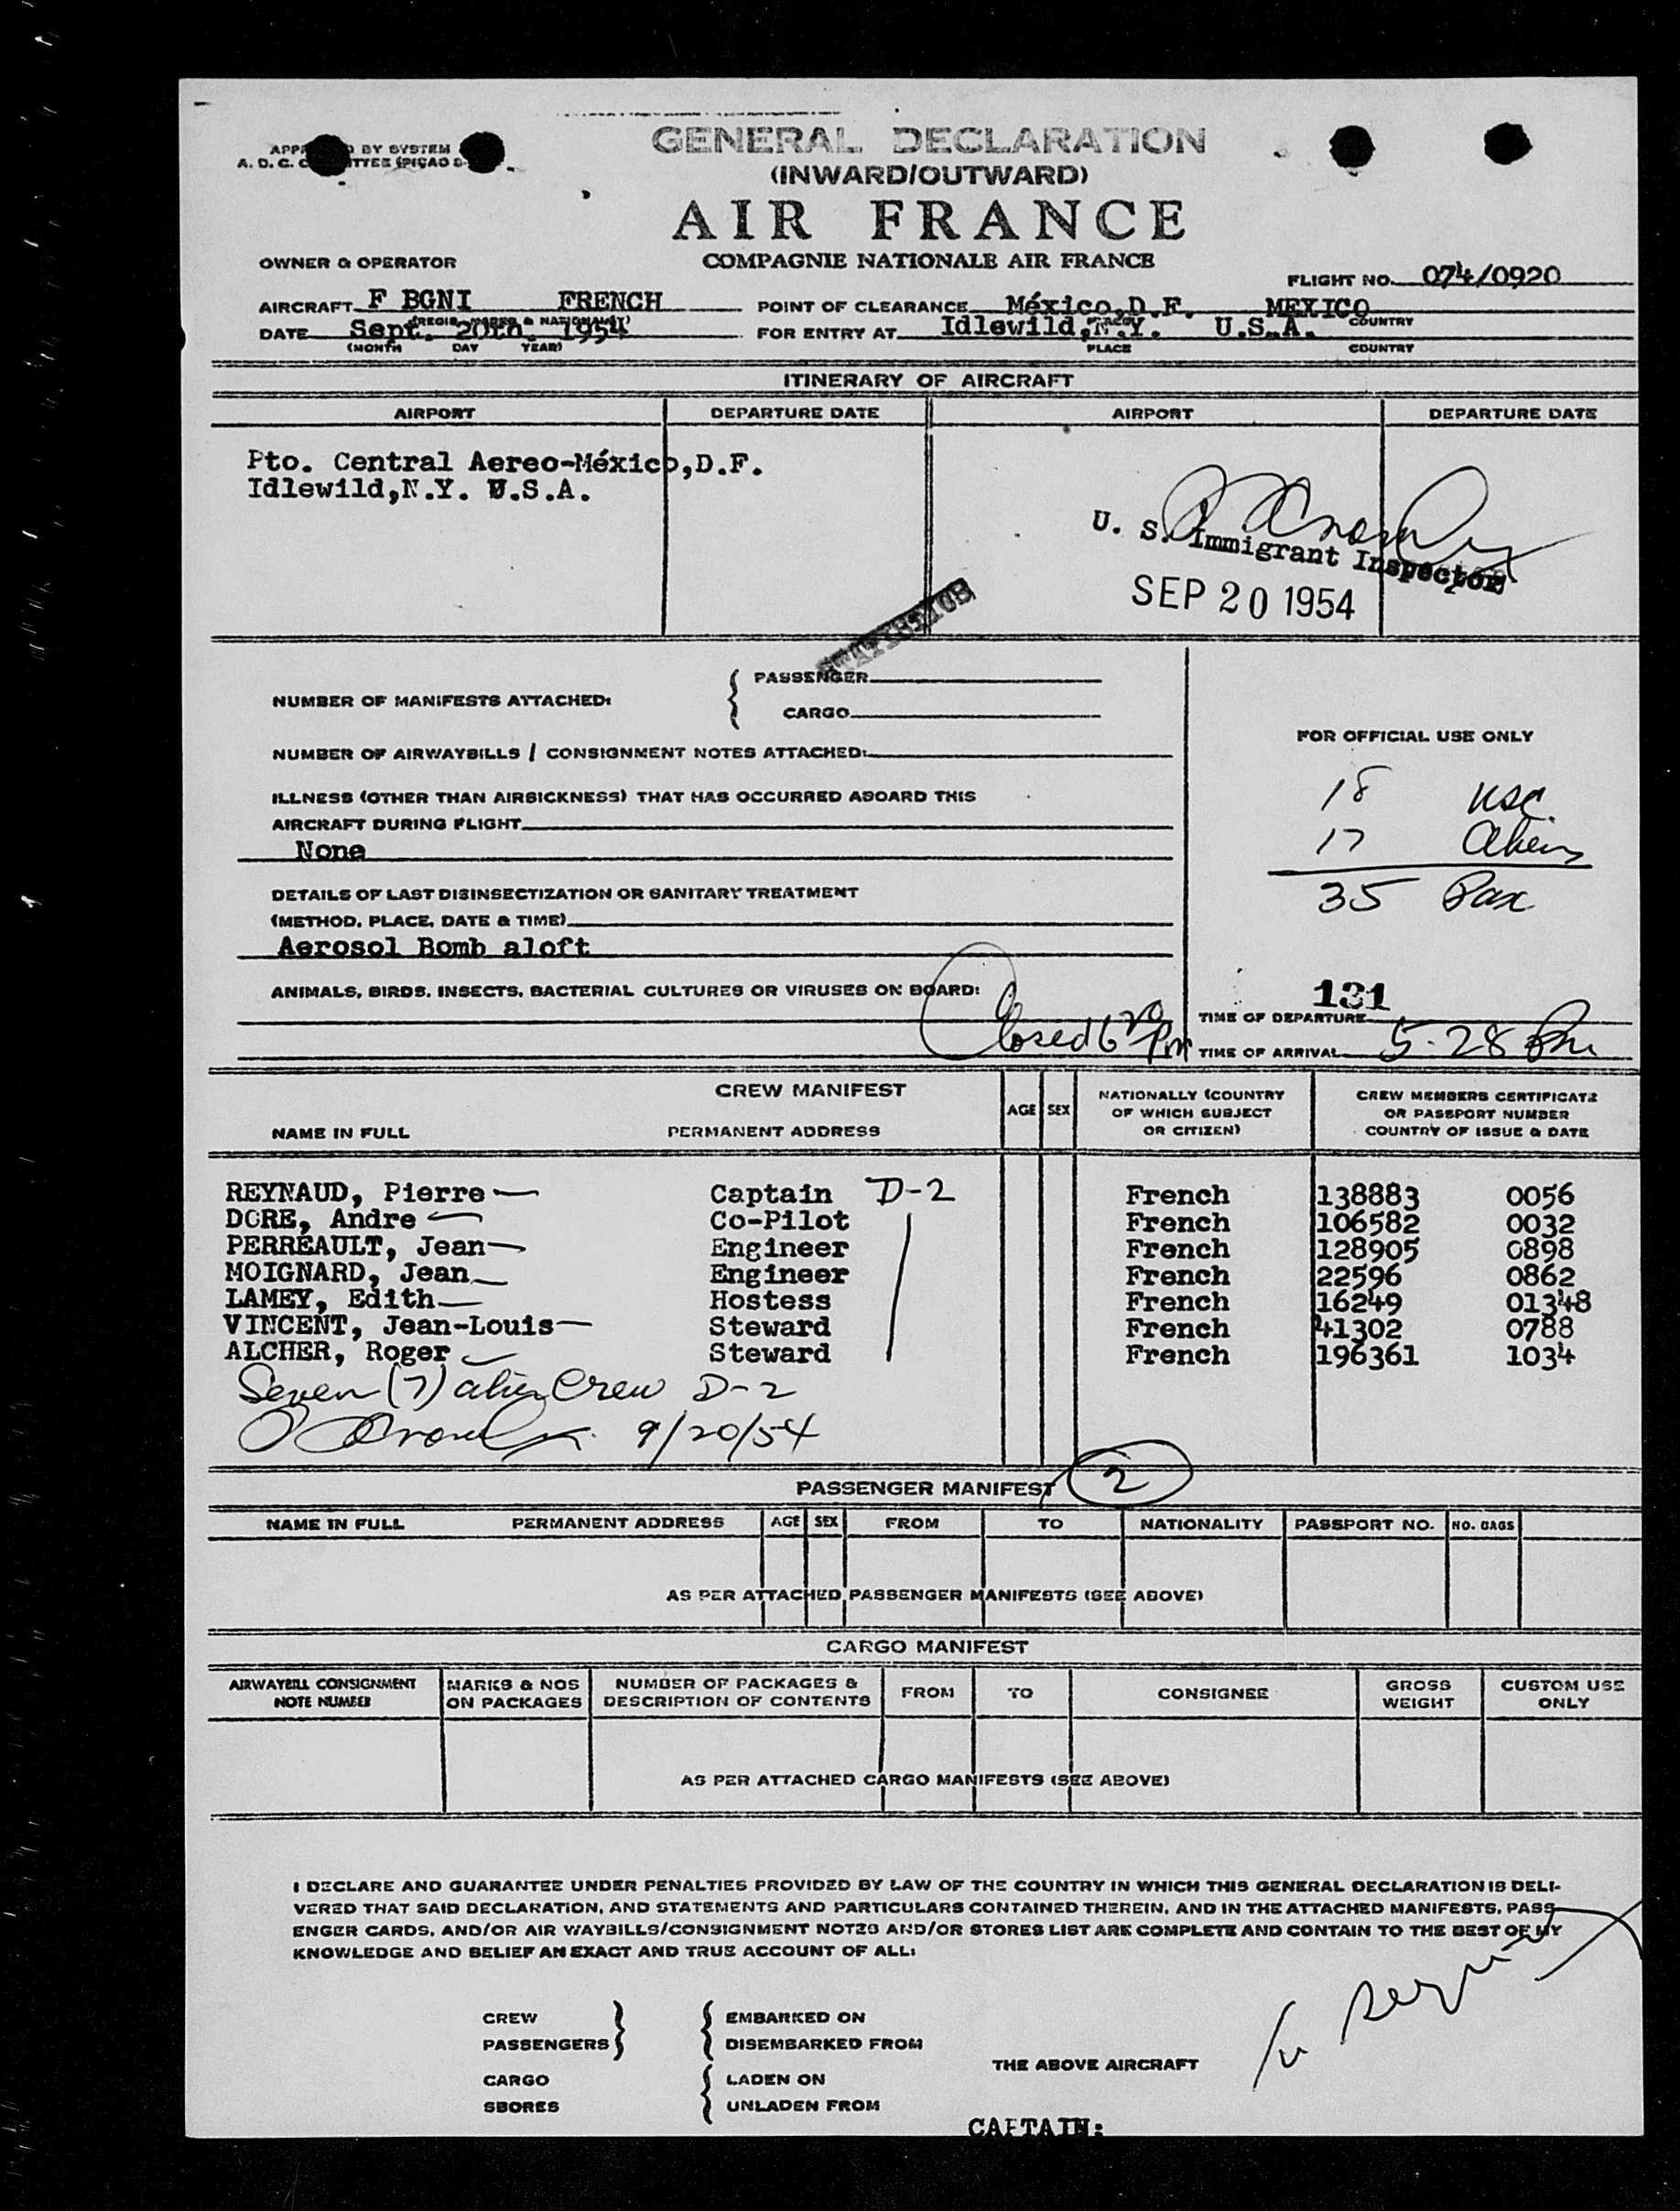 GENERAL DECLARATION
BY SYSTEM
(INWARD/OUTWARD)
AIR FRANCE
COMPAGNIE NATIONALE AIR FRANCE
OWNER & OPERATOR
FLIGHT NO. 074/0920
AIRCRAFT F BGNI FRENCH POINT OF CLEARANCE México,D.F. MEXICO
(REGIS. MARKS & NATIONALITY) COUNTRY
DATE Sept. 20th. 1954 FOR ENTRY AT Idlewild,N.Y. U.S.A.
(MONTH DAY YEAR) PLACE COUNTRY
ITINERARY OF AIRCRAFT
AIRPORT DEPARTURE DATE AIRPORT DEPARTURE DATE
Pto. Central Aereo-México,D.F.
Idlewild,N.Y. U.S.A.
U. S. Immigrant Inspector
SEP 20 1954
NUMBER OF MANIFESTS ATTACHED: PASSENGER
CARGO
FOR OFFICIAL USE ONLY
NUMBER OF AIRWAYBILLS / CONSIGNMENT NOTES ATTACHED:
ILLNESS (OTHER THAN AIRSICKNESS) THAT HAS OCCURRED ABOARD THIS
AIRCRAFT DURING FLIGHT
None
18 USC
17 Aliens
35 Pax
DETAILS OF LAST DISINSECTIZATION OR SANITARY TREATMENT
(METHOD, PLACE, DATE & TIME)
Aerosol Bomb aloft
ANIMALS, BIRDS, INSECTS, BACTERIAL CULTURES OR VIRUSES ON BOARD:
131
TIME OF DEPARTURE
Closed 6 20 Pm
TIME OF ARRIVAL 5-28 Pm
CREW MANIFEST
NAME IN FULL PERMANENT ADDRESS AGE SEX NATIONALLY (COUNTRY OF WHICH SUBJECT OR CITIZEN) CREW MEMBERS CERTIFICATE OR PASSPORT NUMBER COUNTRY OF ISSUE & DATE
REYNAUD, Pierre Captain D-2 French 138883 0056
DORE, Andre Co-Pilot French 106582 0032
PERREAULT, Jean Engineer French 128905 0898
MOIGNARD, Jean Engineer French 22596 0862
LAMEY, Edith Hostess French 16249 01348
VINCENT, Jean-Louis Steward French 41302 0788
ALCHER, Roger Steward French 196361 1034
Seven (7) alien Crew D-2
9/20/54
PASSENGER MANIFEST 2
NAME IN FULL PERMANENT ADDRESS AGE SEX FROM TO NATIONALITY PASSPORT NO. NO. BAGS
AS PER ATTACHED PASSENGER MANIFESTS (SEE ABOVE)
CARGO MANIFEST
AIRWAYBILL CONSIGNMENT NOTE NUMBER MARKS & NOS ON PACKAGES NUMBER OF PACKAGES & DESCRIPTION OF CONTENTS FROM TO CONSIGNEE GROSS WEIGHT CUSTOM USE ONLY
AS PER ATTACHED CARGO MANIFESTS (SEE ABOVE)
I DECLARE AND GUARANTEE UNDER PENALTIES PROVIDED BY LAW OF THE COUNTRY IN WHICH THIS GENERAL DECLARATION IS DELI-
VERED THAT SAID DECLARATION, AND STATEMENTS AND PARTICULARS CONTAINED THEREIN, AND IN THE ATTACHED MANIFESTS, PASS
ENGER CARDS, AND/OR AIR WAYBILLS/CONSIGNMENT NOTES AND/OR STORES LIST ARE COMPLETE AND CONTAIN TO THE BEST OF MY
KNOWLEDGE AND BELIEF AN EXACT AND TRUE ACCOUNT OF ALL:
CREW EMBARKED ON
PASSENGERS DISEMBARKED FROM
THE ABOVE AIRCRAFT
CARGO LADEN ON
SBORES UNLADEN FROM
CAPTAIN: